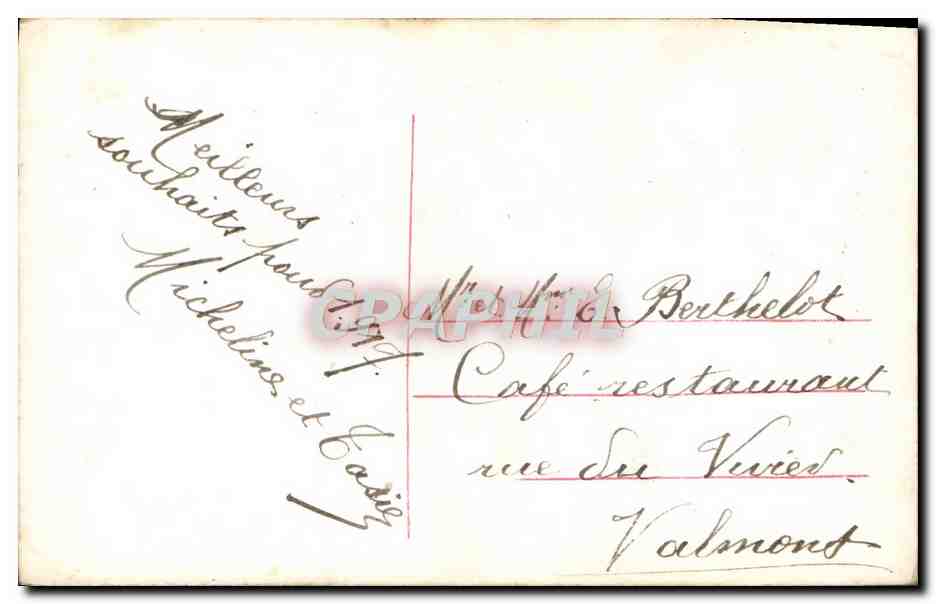 Meilleurs
souhaits pour 1917.
Micheline et
CPAPHIL
Mr et Mme E. Berthelot
Café restaurant
rue du Vivier
Valmont